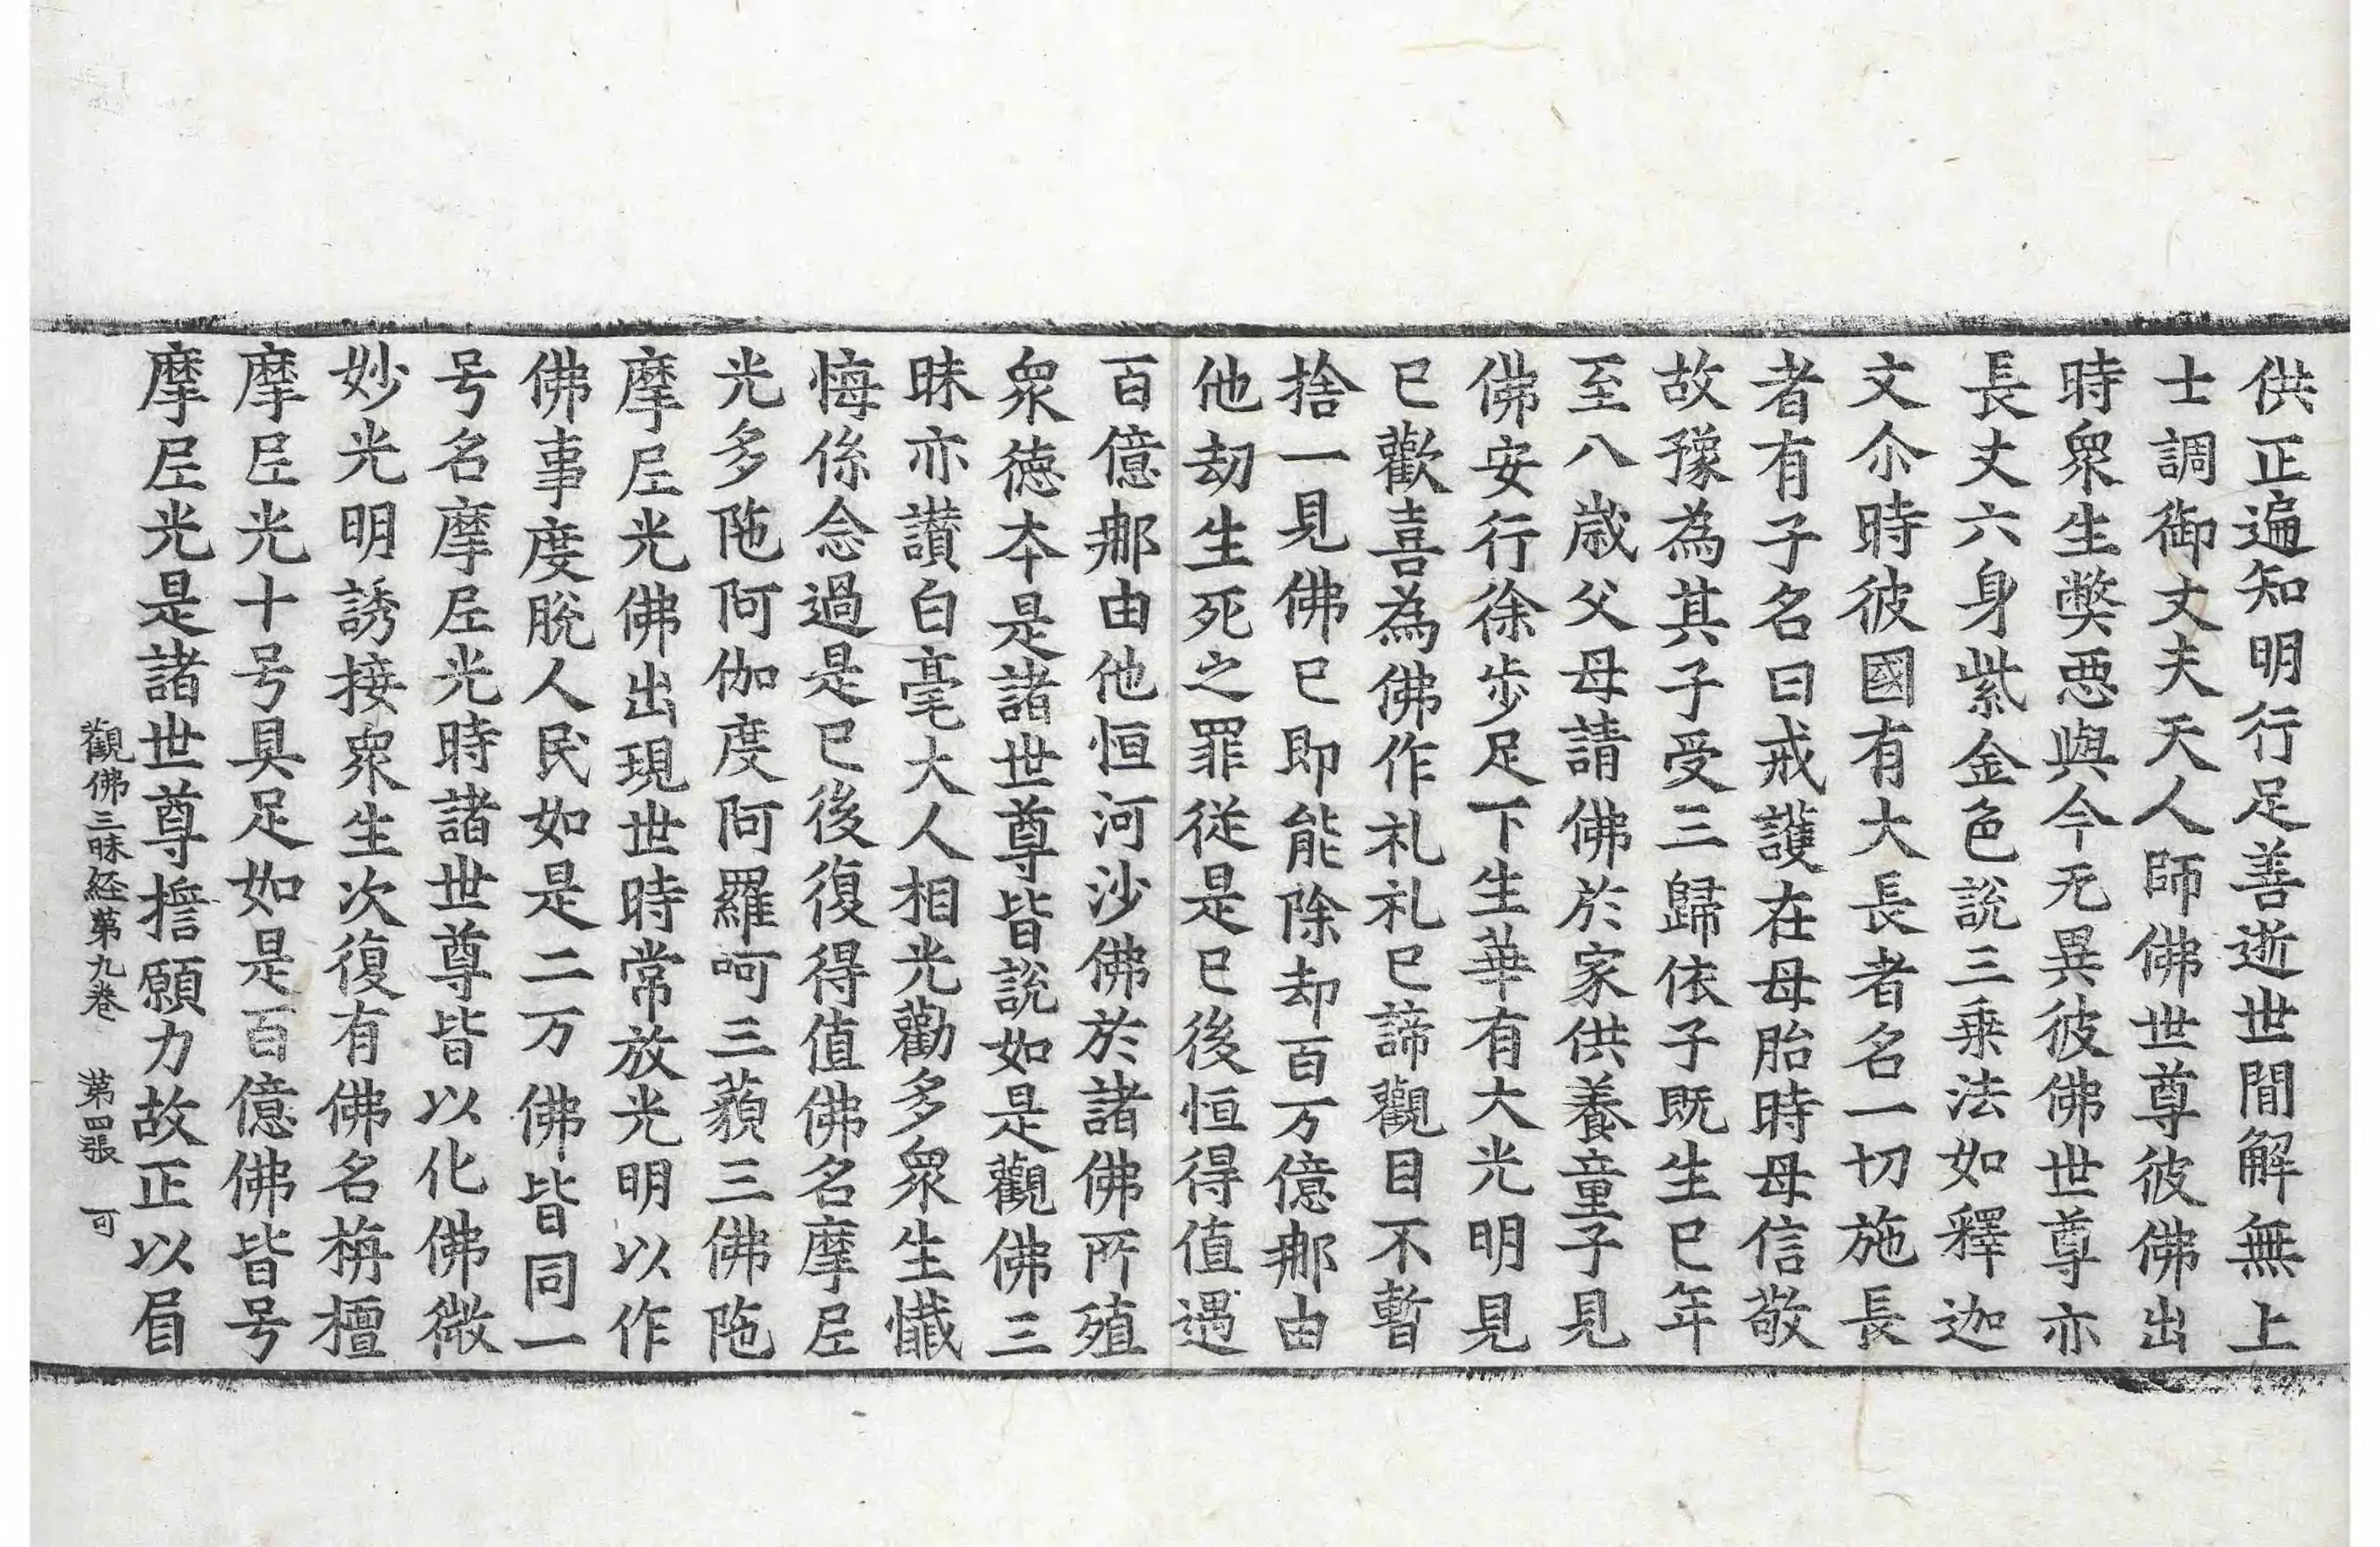 供正遍知明行足善逝世間解無上
士調御丈夫天人師佛世尊彼佛出
時衆生弊惡與今无異彼佛世尊亦
長丈六身紫金色說三乗法如釋迦
文尒時彼國有大長者名一切施長
者有子名曰戒護在母胎時母信敬
故豫為其子受三歸依子既生已年
至八歲父母請佛於家供養童子見
佛安行徐步足下生華有大光明見
已歡喜為佛作礼礼已諦觀目不暫
捨一見佛已即能除却百万億那由
他劫生死之罪従是已後恒得值遇
百億那由他恒河沙佛於諸佛所殖
衆徳本是諸世尊皆說如是觀佛三
昧亦讃白毫大人相光勸多衆生懺
悔係念過是已後復得值佛名摩尼
光多陁阿伽度阿羅呵三藐三佛陁
摩尼光佛出現世時常放光明以作
佛事度脫人民如是二万佛皆同一
号名摩尼光時諸世尊皆以化佛微
妙光明誘接衆生次復有佛名栴檀
摩尼光十号具足如是百億佛皆号
摩尼光是諸世尊擔願力故正以眉
觀佛三昧経第九卷　第四張　可